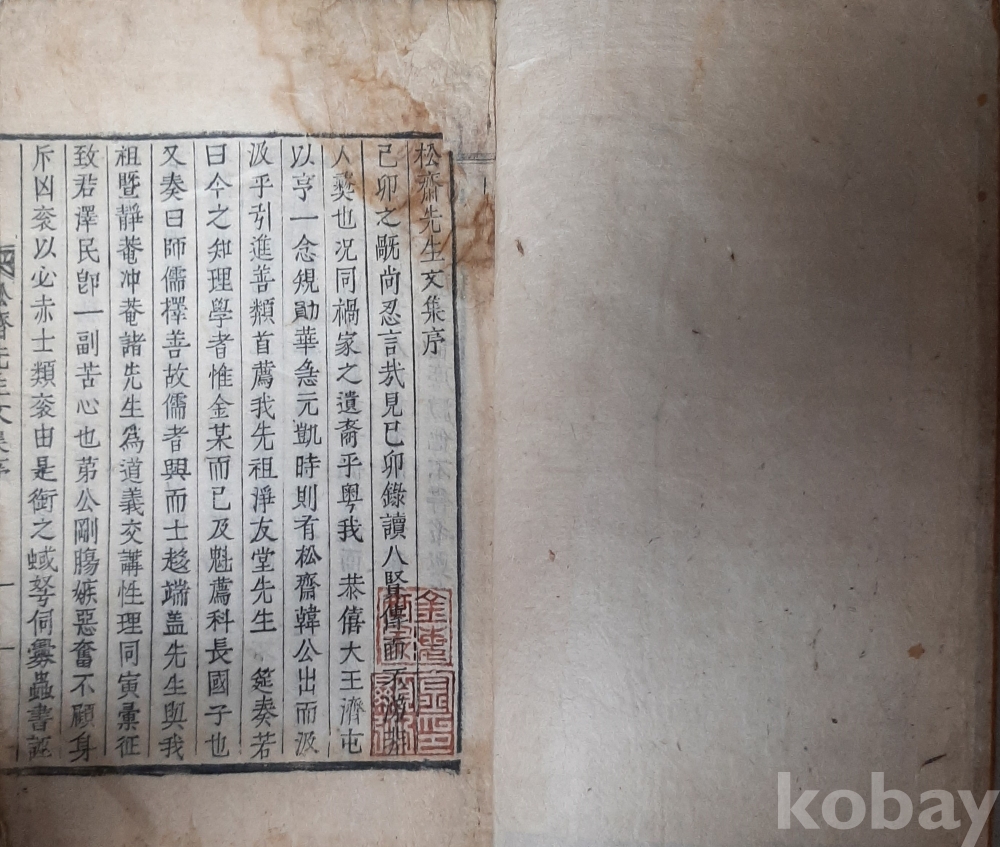 松齋先生文集序
己卯之觝尚忍言㢤見己卯錄讀八賢傳而不洟非
人彛也况同禍家之遺裔乎粤我 恭僖大王濟屯
以亨一念規勛華急元凱時則有松齋韓公出而汲
汲乎引進善類首薦我先祖淨友堂先生 筵奏若
曰今之知理學者惟金某而已及魁薦科長國子也
又奏曰師儒擇善故儒者興而士趍端盖先生與我
祖曁靜菴冲菴諸先生爲道義交講性理同寅彙征
致君澤民卽一副苦心也苐公剛膓嫉惡奮不顧身
斥凶袞以必赤士類袞由是銜之蜮弩伺釁蟲書誣
松齋先生文集序
一
kobay